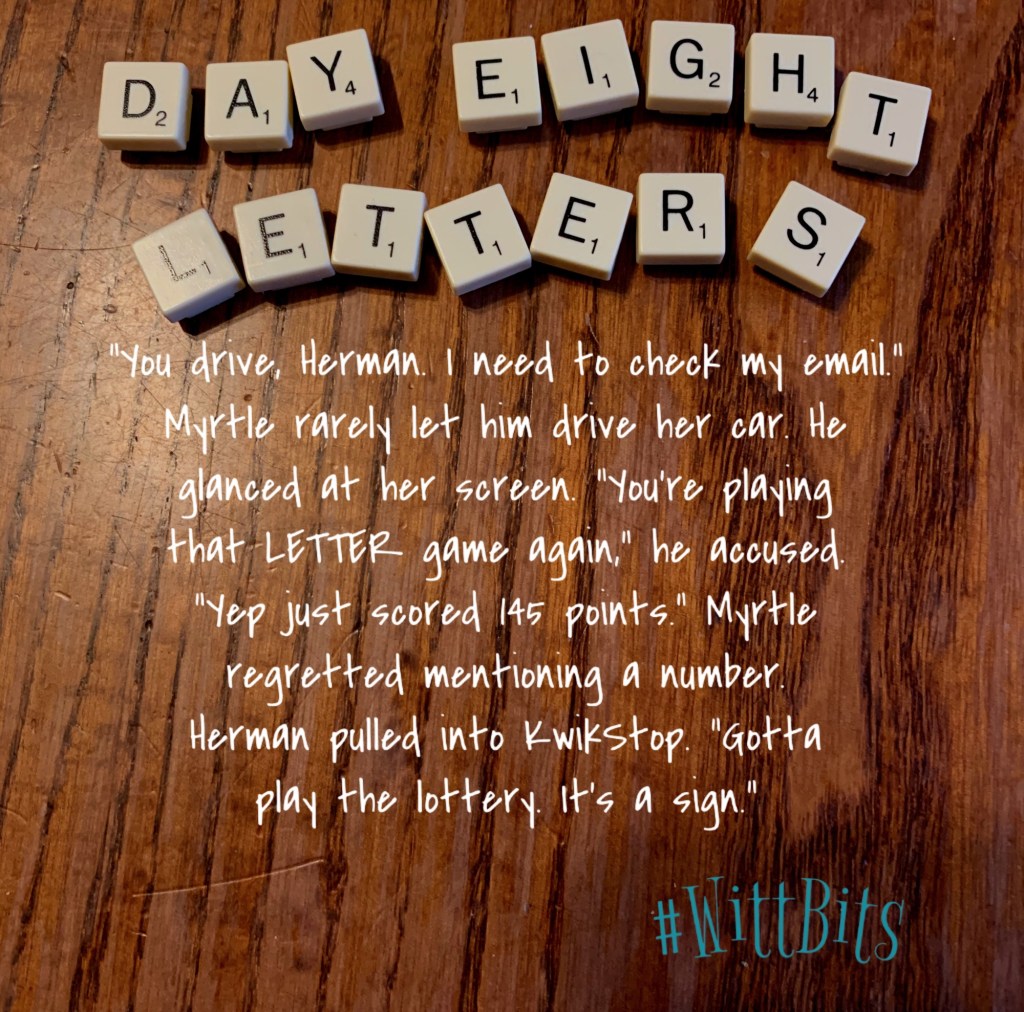 DAY EIGHT
LETTERS
"You drive, Herman. I need to check my email."
Myrtle rarely let him drive her car. He
glanced at her screen. "You're playing
that LETTER game again," he accused.
"Yep just scored 145 points." Myrtle
regretted mentioning a number.
Herman pulled into KwikStop. "Gotta
play the lottery. It's a sign."
#WittBits